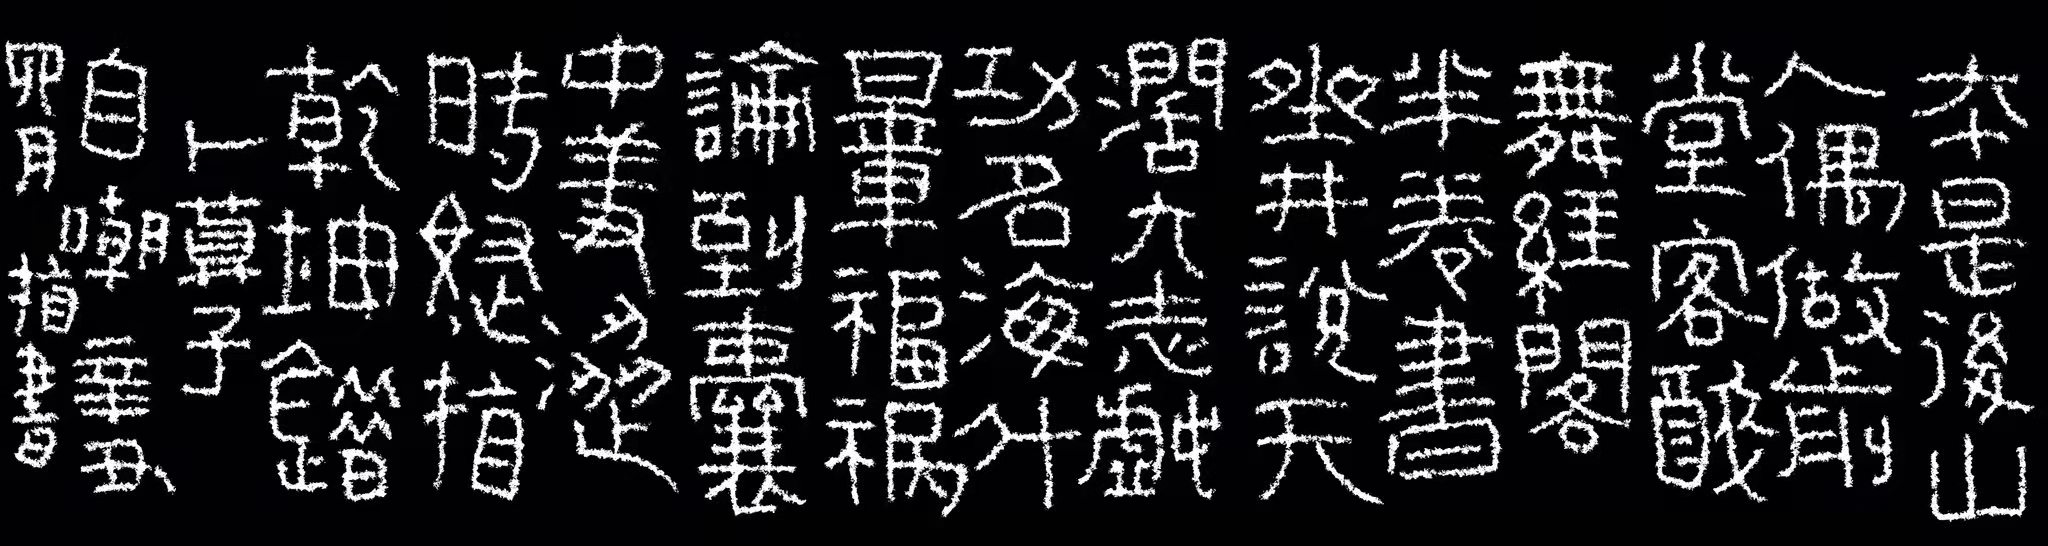 本是後山
人偶做前
堂客醉
舞經閣
半卷書
坐井說天
濶大志戲
功名海斗
量福禍
論到囊
中羞澀
時怒指
乾坤錯
卜算子
自嘲辛丑
月指書